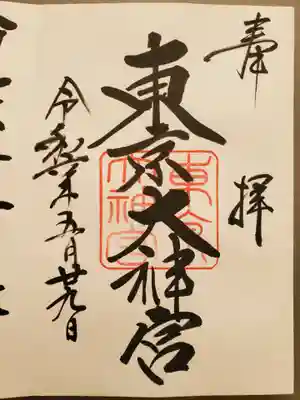 奉拝
東京大神宮
東京
大神宮
令和元年五月廿九日